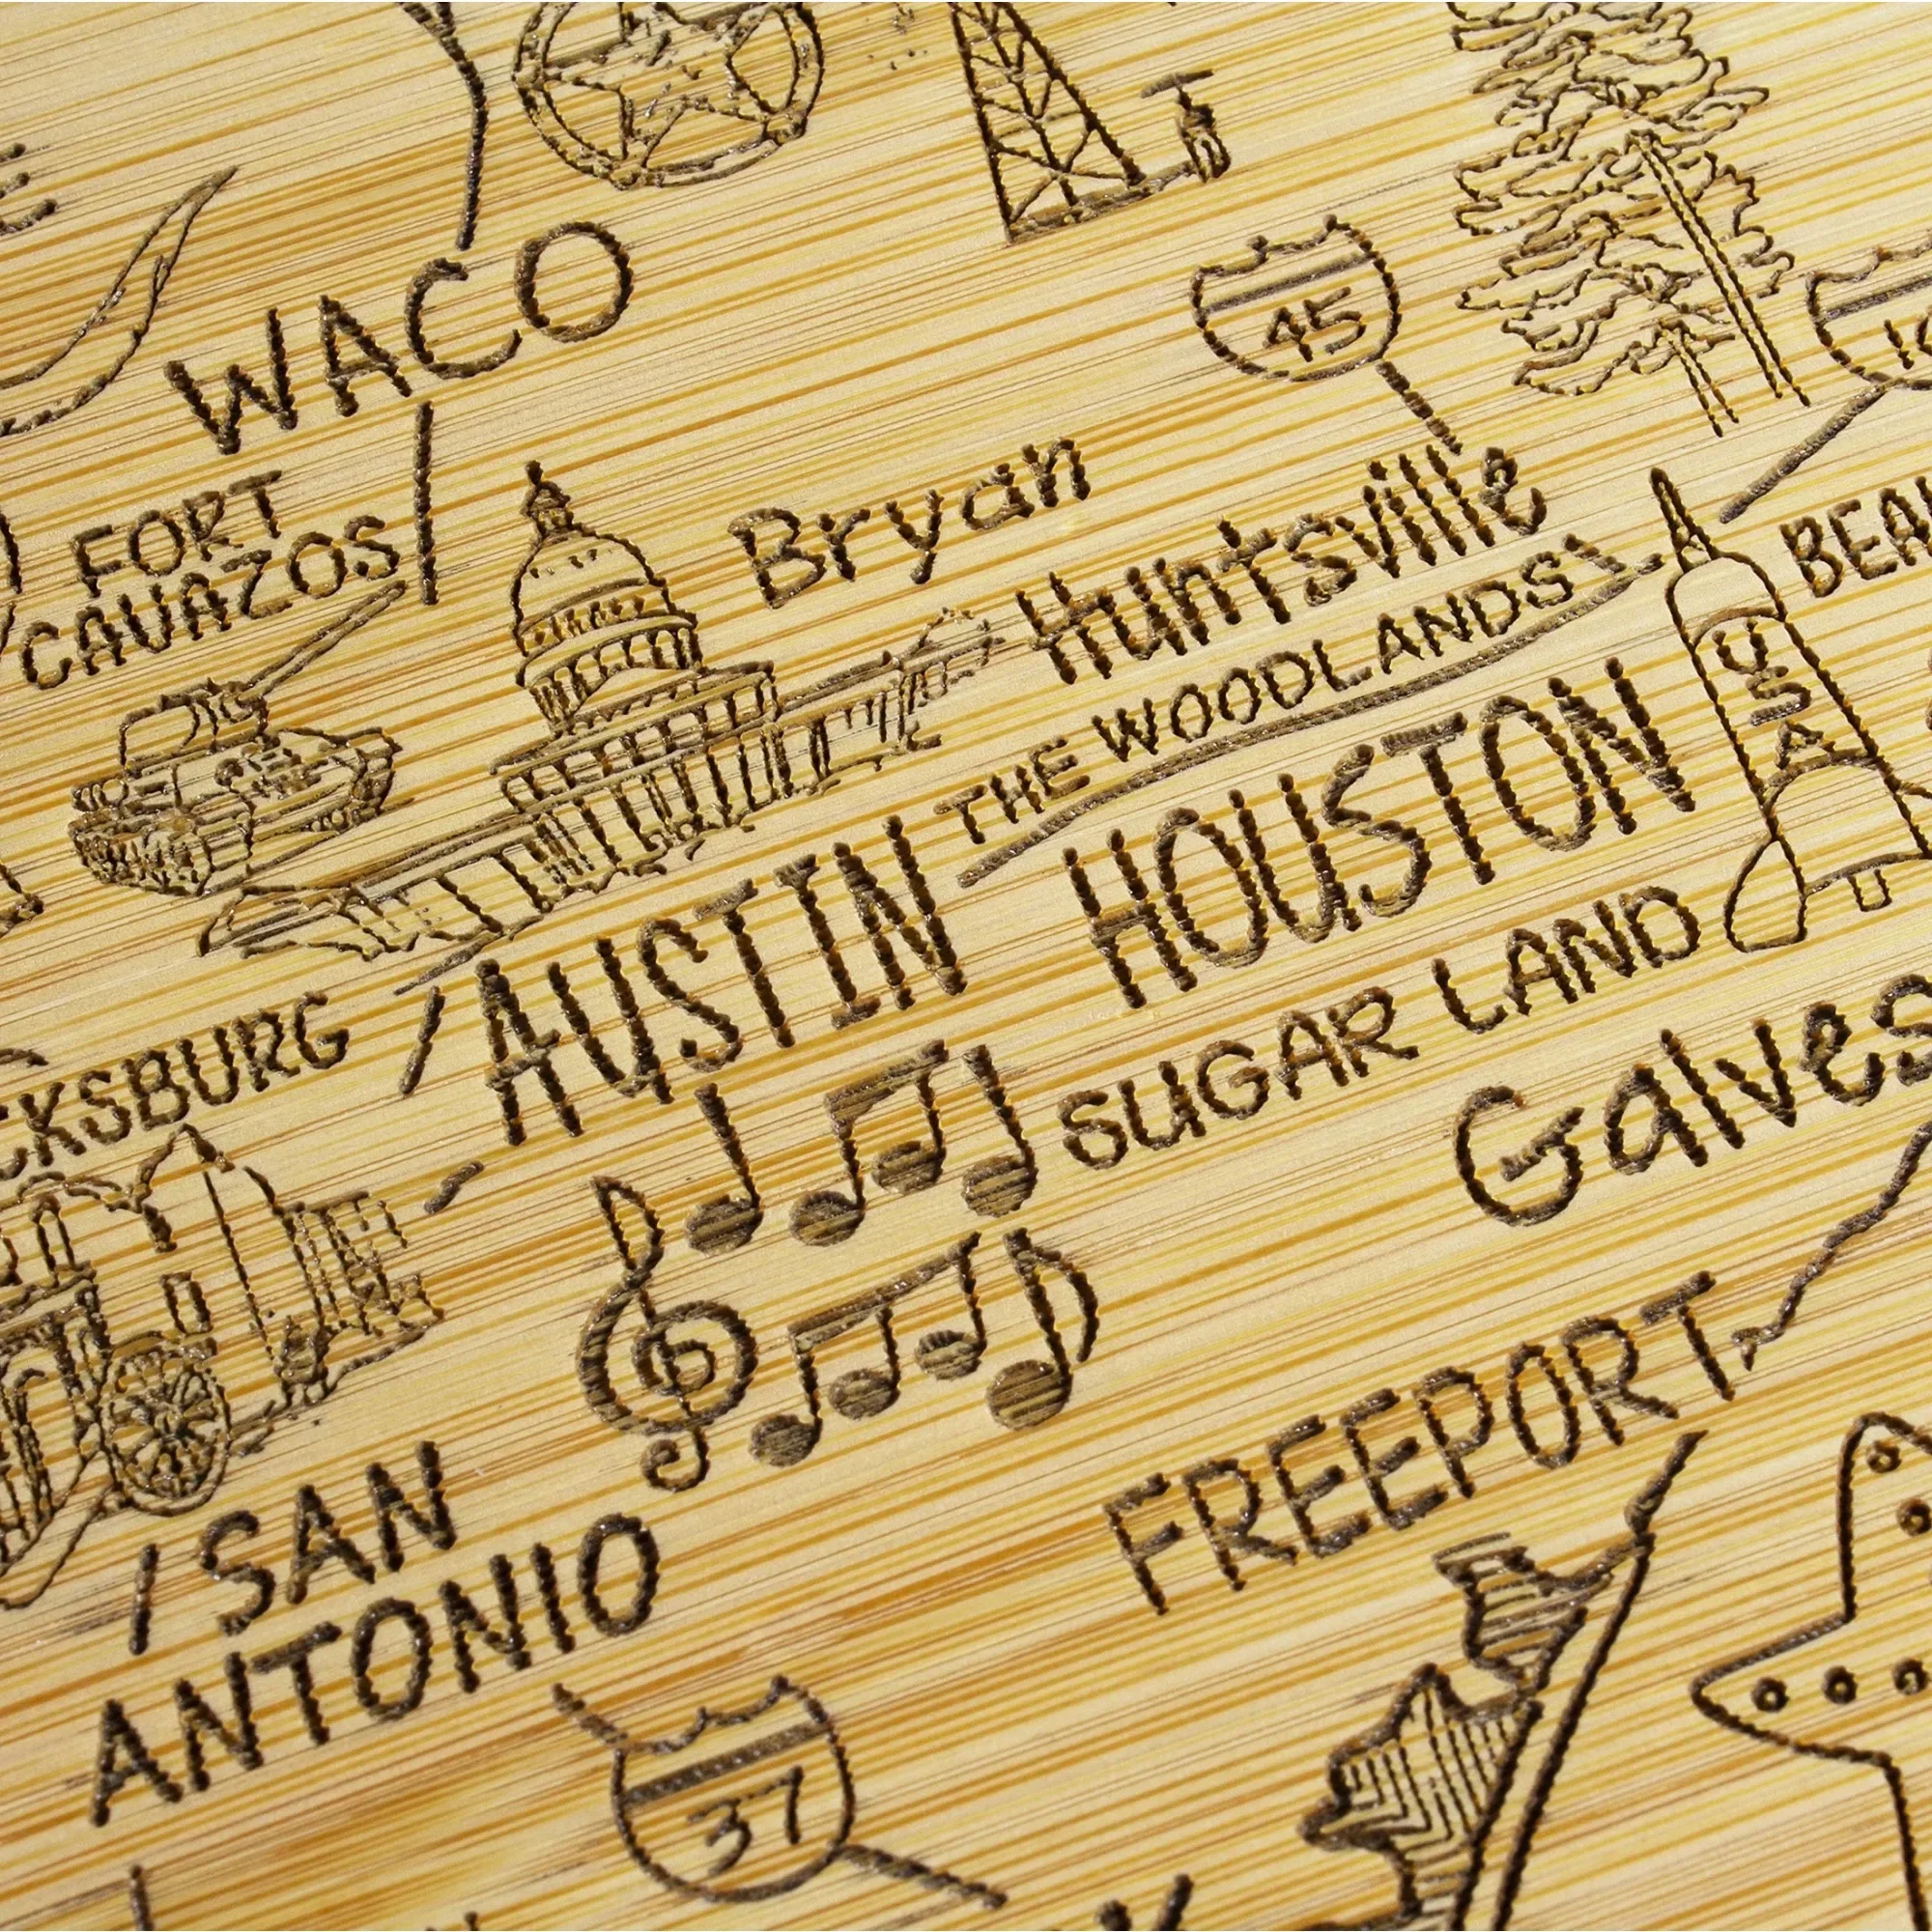 WACO
45
10
FORT
CAVAZOS
Bryan
Huntsville
THE WOODLANDS
BEAU
USA
HOUSTON
AUSTIN
SUGAR LAND
CKSBURG
Galves
FREEPORT
SAN
ANTONIO
37